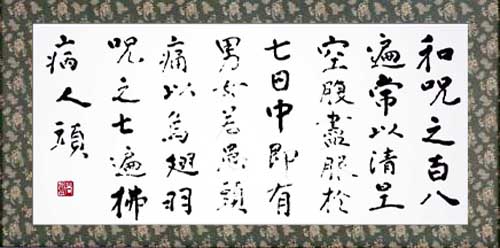 和呪之百八
遍常以清
空腹盡服於
七日中即有
男女若患頭
痛以烏翅羽
呪之七遍拂
病人頭